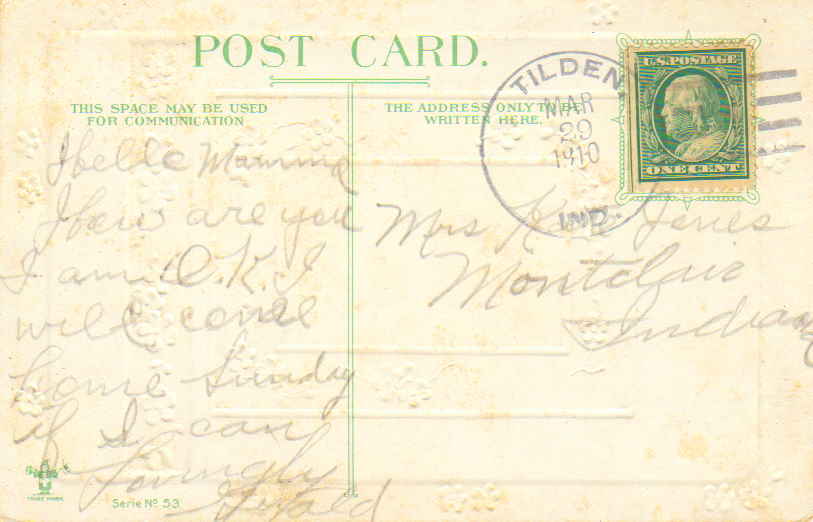 POST CARD.
THIS SPACE MAY BE USED
FOR COMMUNICATION
THE ADDRESS ONLY TO BE
WRITTEN HERE.
TILDEN,
MAR
29
1910
IND.
U.S. POSTAGE
ONE CENT
Hello Mamma
How are you
I am O.K. I
will come
home Sunday
if I can
Lovingly
Gerald
Mrs Jones
Montclair
Indiana
TRADE MARK
Serie No 53